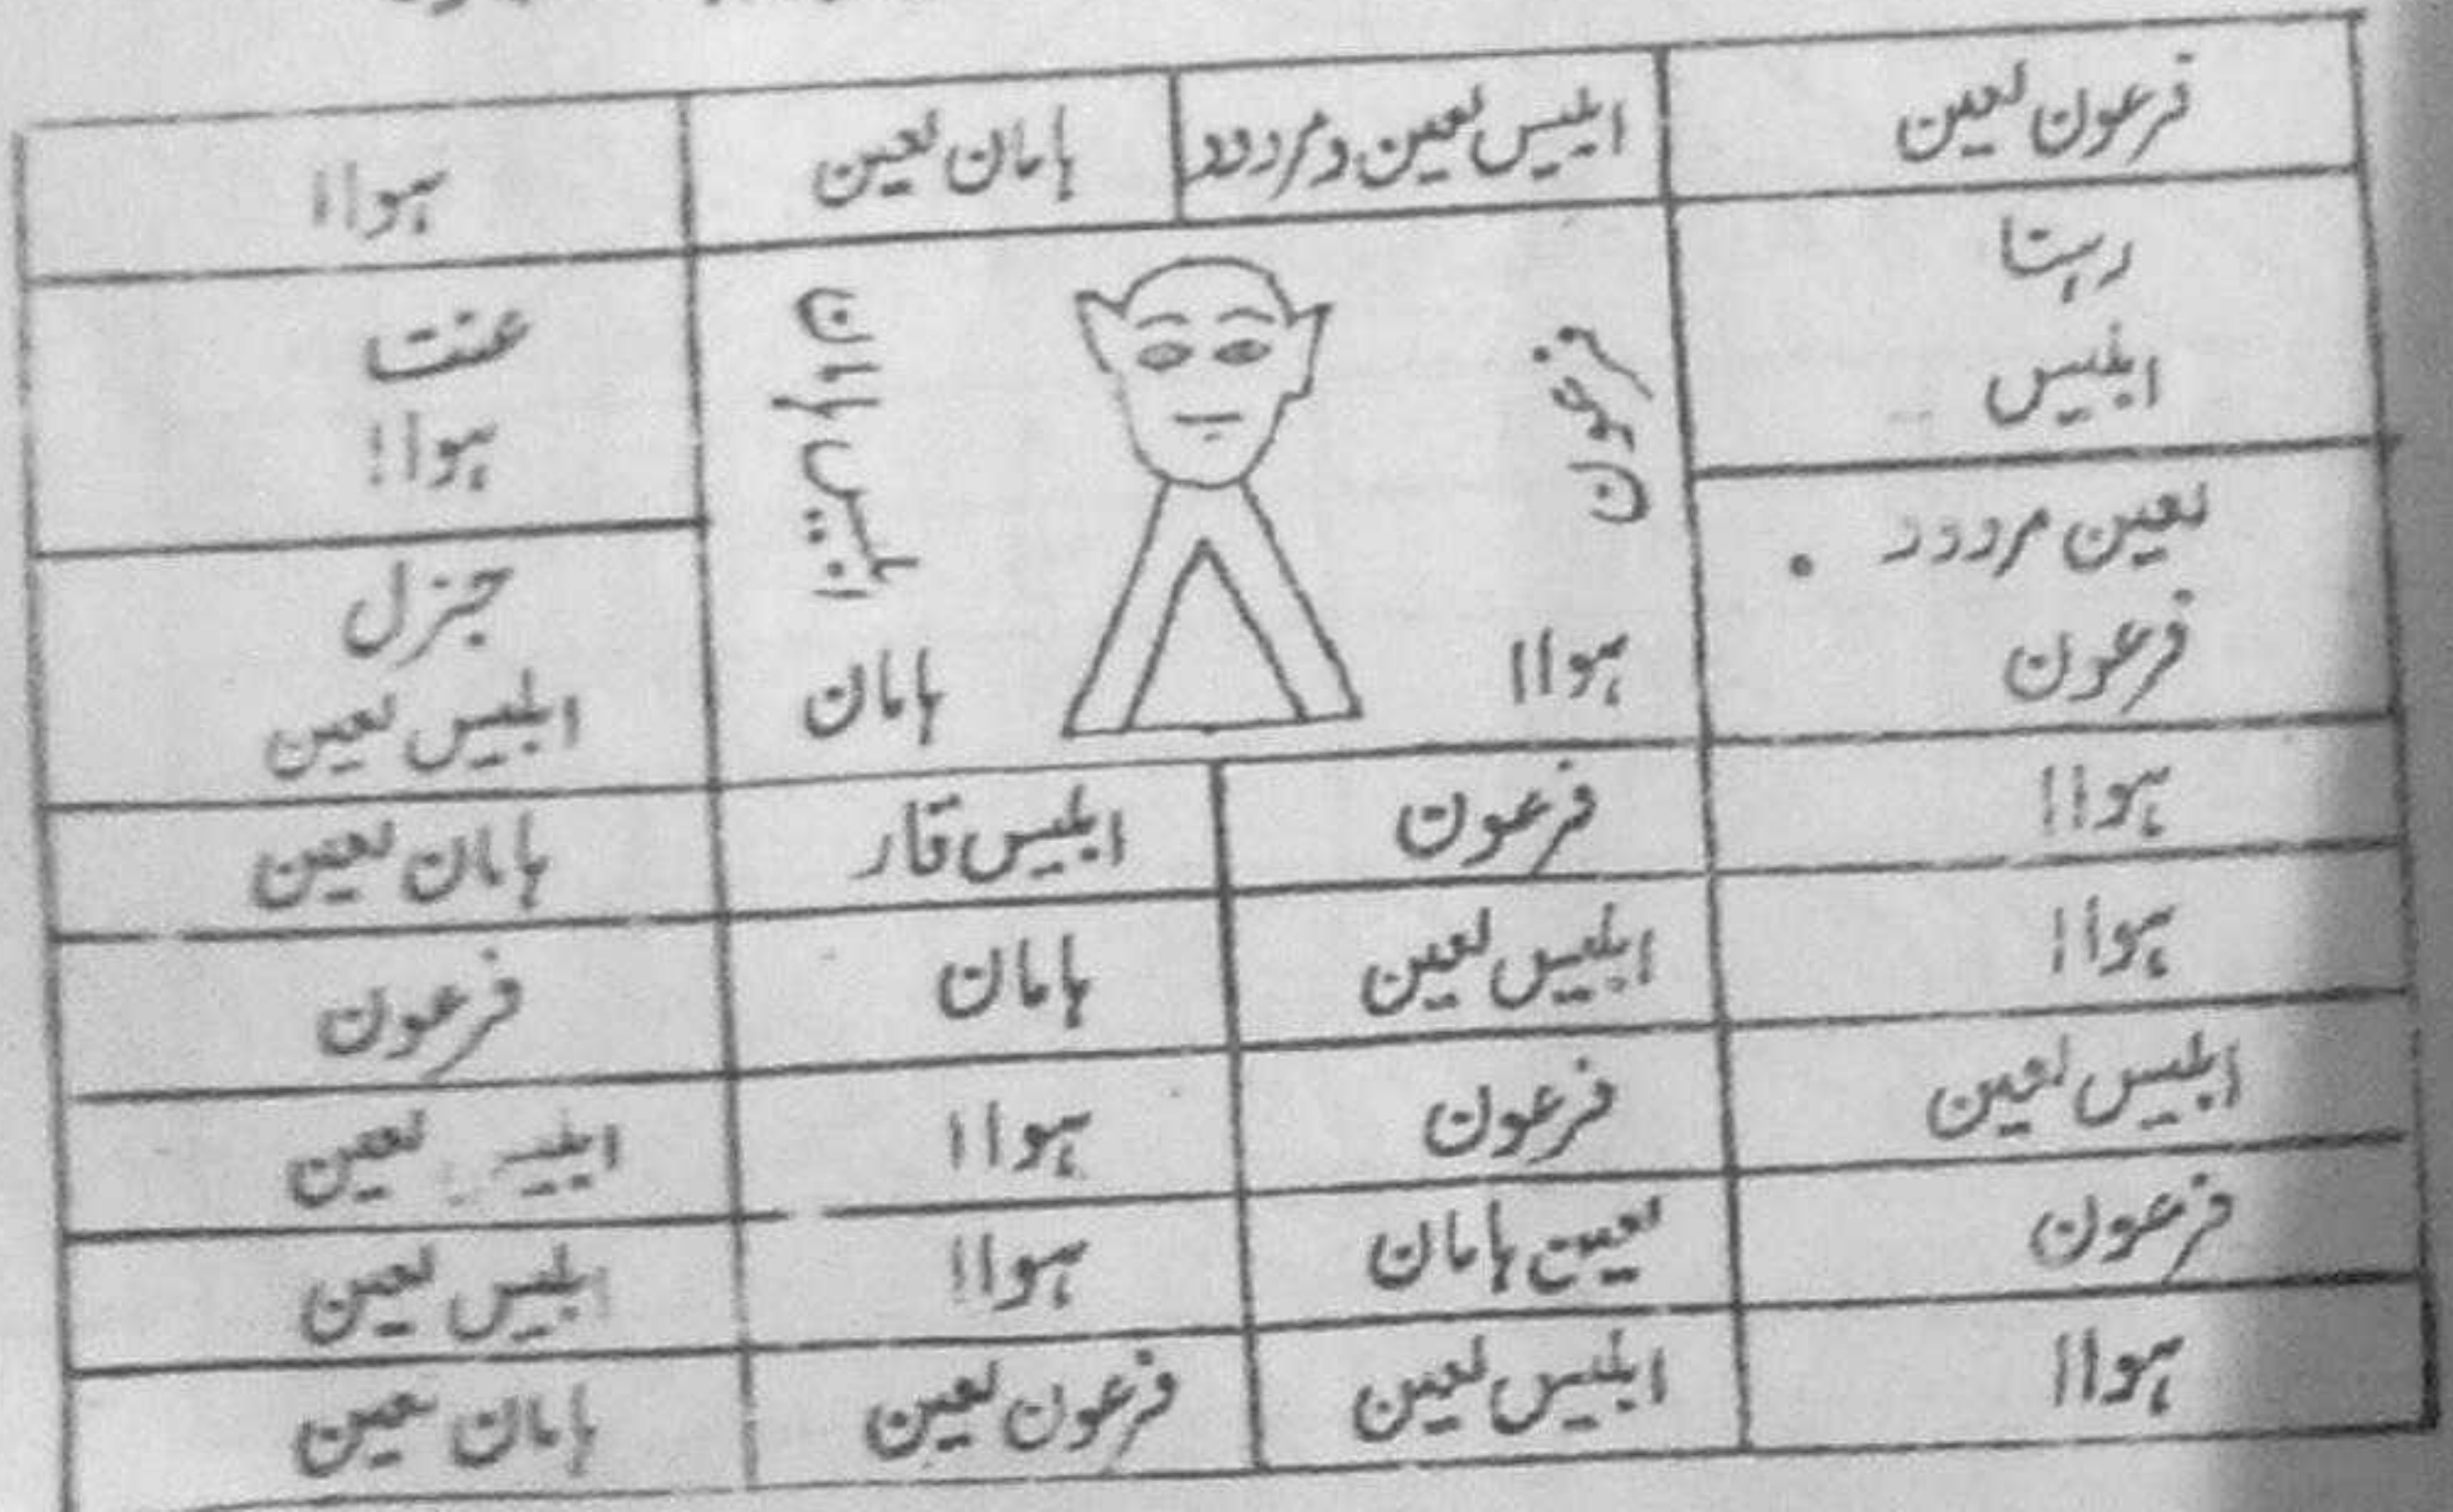 فرعون لعین
ابلیس لعین و مردود
ہامان لعین
ہواا
رہتا
ابلیس
لعین مردود
فرعون
فرعون
ہواا
ابلیس ہامان
ہامان
عنت
ہواا
جنزل
ابلیس لعین
ہواا
فرعون
ابلیس قار
ہامان لعین
ہواا
ابلیس لعین
ہامان
فرعون
ابلیس لعین
فرعون
ہواا
لعین
فرعون
لعین ہامان
ہواا
ابلیس لعین
ہواا
ابلیس لعین
فرعون لعین
ہامان لعین